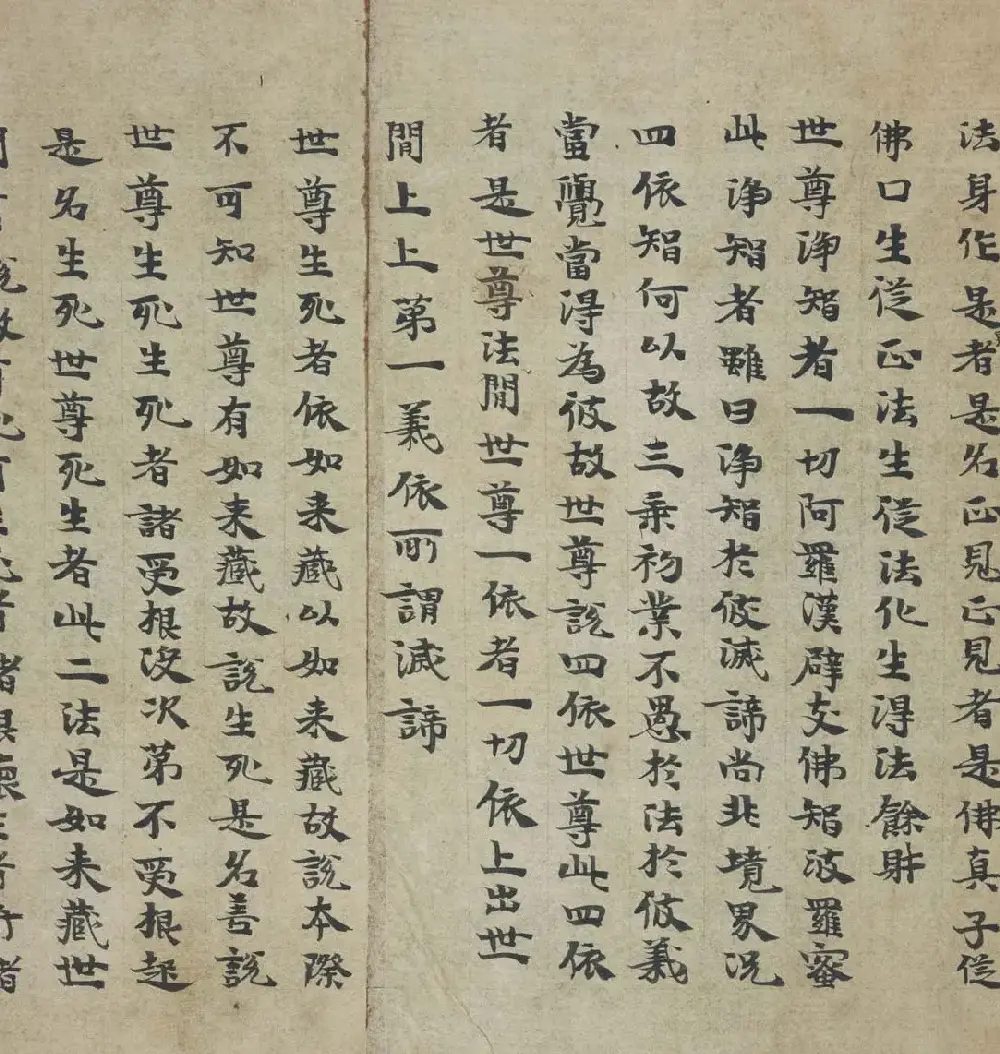 法身作是者是名正見正見者是佛真子從
佛口生從正法生從法化生得法餘財
世尊淨智者一切阿羅漢辟支佛智波羅蜜
此淨智者雖曰淨智於彼滅諦尚非境界況
四依智何以故三乘初業不愚於法於彼義
當覺當得為彼故世尊說四依世尊此四依
者是世尊法間世尊一依者一切依上出世
間上上第一義依所謂滅諦
世尊生死者依如来藏以如来藏故說本際
不可知世尊有如来藏故說生死是名善說
世尊生死生死者諸受根沒次第不受根起
是名生死世尊死生者此二法是如来藏世
說故者諸根壞者